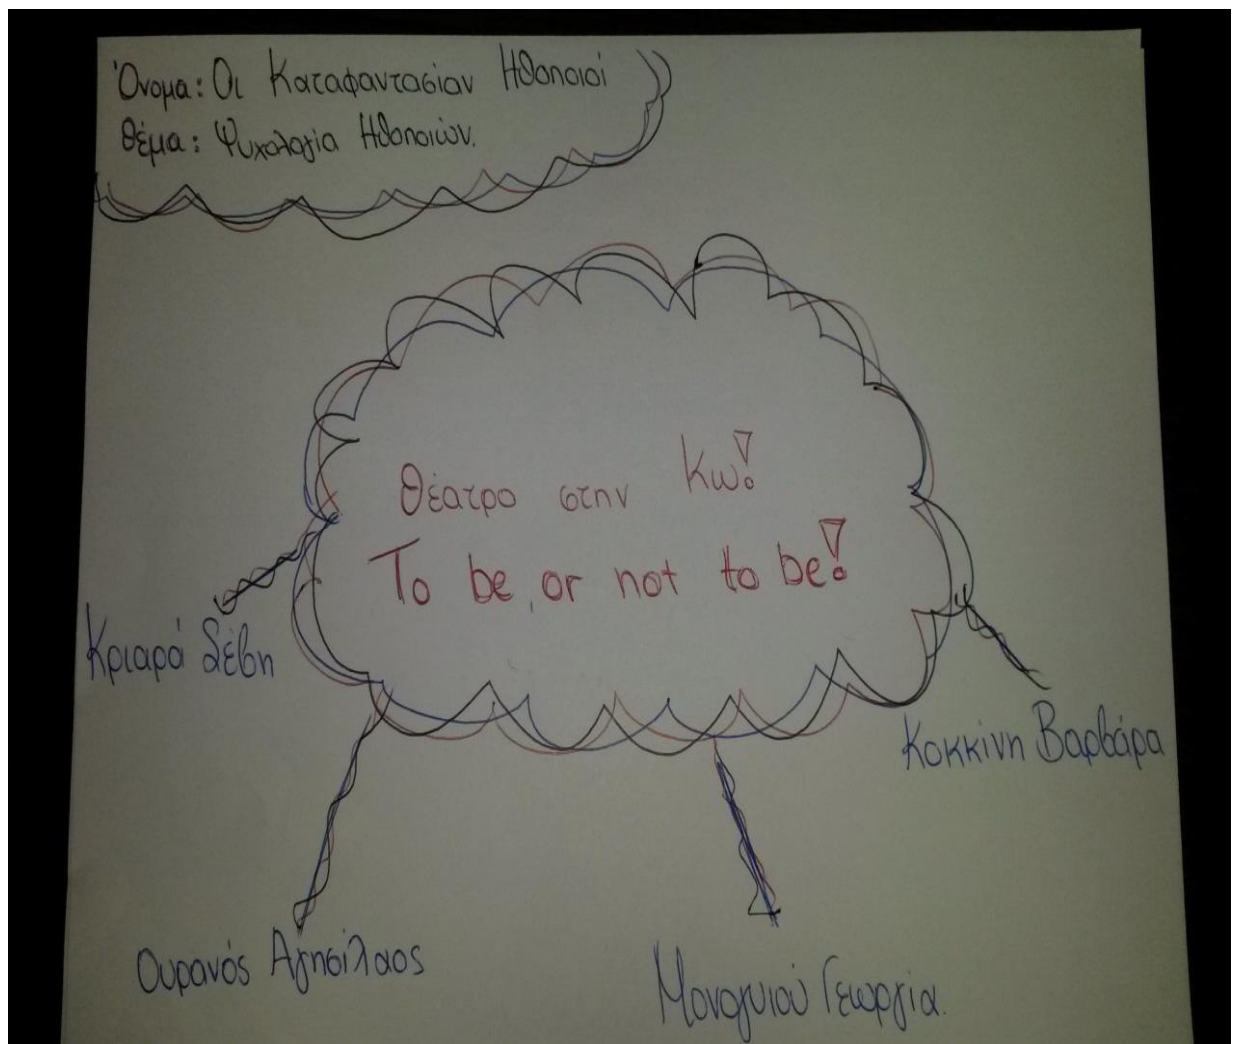 Όνομα: Οι Καταφαντασίαν Ηθοποιοί
Θέμα: Ψυχολογία Ηθοποιών.
Θέατρο στην Κω!
To be, or not to be!
Κριαρά Σέβη
Κοκκίνη Βαρβάρα
Ουρανός Αγησίλαος
Μονογυιού Γεωργία.